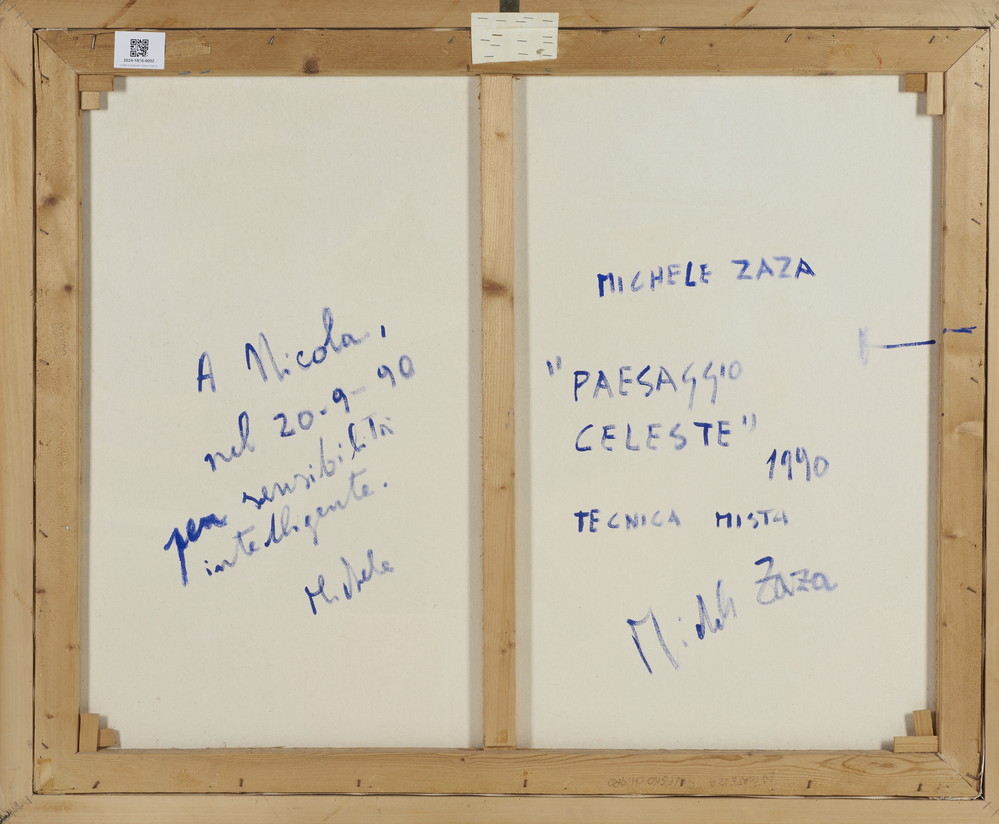 A Nicola,
nel 20-9-90
per sensibilità
intelligente.
Michele
MICHELE ZAZA
"PAESAGGIO
CELESTE"
1990
TECNICA MISTA
Michele Zaza